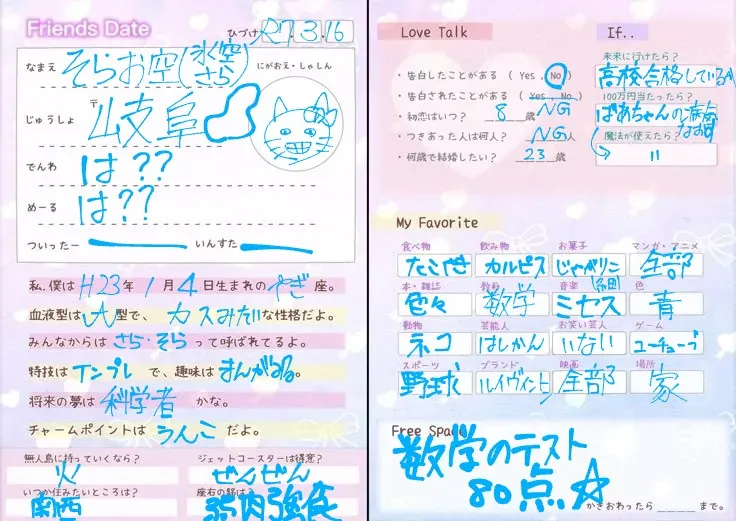 Friends Date
ひづけ R7.3.16
なまえ そらお空(氷空さら)
にがおえ・しゃしん
じゅうしょ 〒 岐阜
でんわ は??
めーる は??
ついったー いんすた
私、僕は H23年 1月 4日生まれの やぎ 座。
血液型は A型で、カスみたいな性格だよ。
みんなからは さら・そら って呼ばれてるよ。
特技は テンプレ で、趣味は まんが
将来の夢は 科学者 かな。
チャームポイントは うんこ だよ。
無人島に持っていくなら? ジェットコースターは得意?
火 ぜんぜん
いつか住みたいところは? 座右の銘は?
関西 弱肉強食
Love Talk
・告白したことがある ( Yes . No )
・告白されたことがある ( Yes . No ) NG
・初恋はいつ? 8 歳
・つきあった人は何人? NG 人
・何歳で結婚したい? 23 歳
If..
未来に行けたら?
高校合格している
100万円当たったら?
ばあちゃんの病気なおす
魔法が使えたら?
→ 〃
My Favorite
食べ物 飲み物 お菓子 マンガ・アニメ
たこやき カルピス じゃがりこ 全部
本・雑誌 教科 音楽 色
色々 数学 ミセス 青
動物 芸能人 お笑い芸人 ゲーム
ネコ はしかん いない ユーチューブ
スポーツ ブランド 映画 場所
野球 ルイヴィトン 全部 家
Free Space
数学のテスト
80点☆
かきおわったら ____ まで。